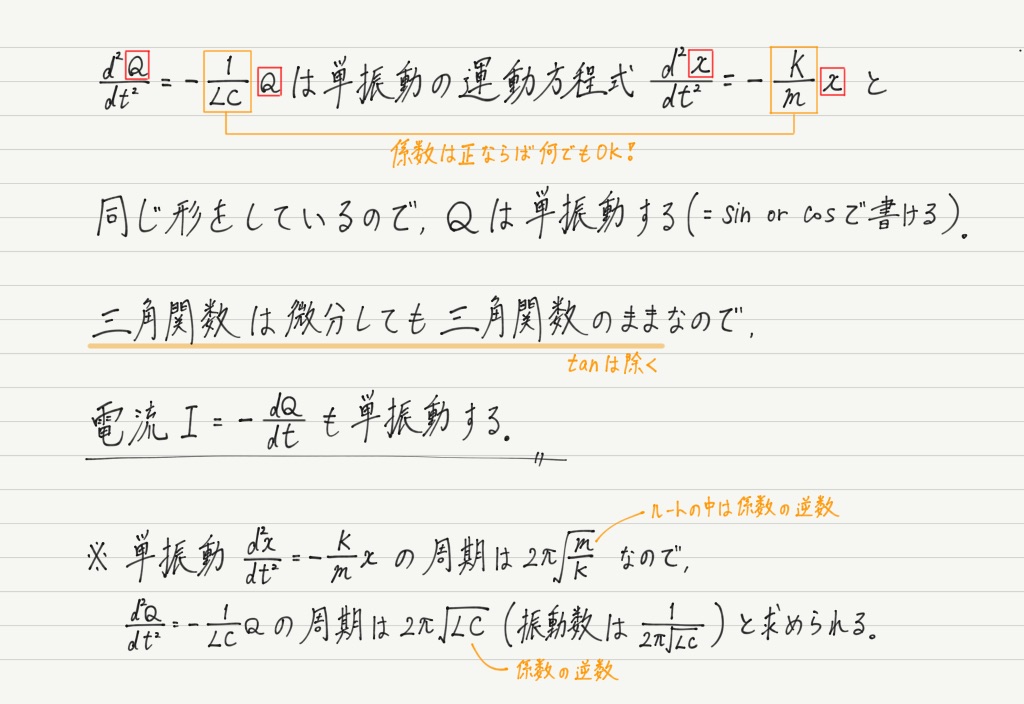 d²Q/dt² = -1/LC Q は単振動の運動方程式 d²x/dt² = -k/m x と
係数は正ならば何でもOK!
同じ形をしているので, Qは単振動する(= sin or cosで書ける).
三角関数は微分しても三角関数のままなので,
tanは除く
電流 I = -dQ/dt も単振動する.
ルートの中は係数の逆数
※ 単振動 d²x/dt² = -k/m x の周期は 2π√(m/k) なので,
d²Q/dt² = -1/LC Q の周期は 2π√LC (振動数は 1/2π√LC) と求められる。
係数の逆数